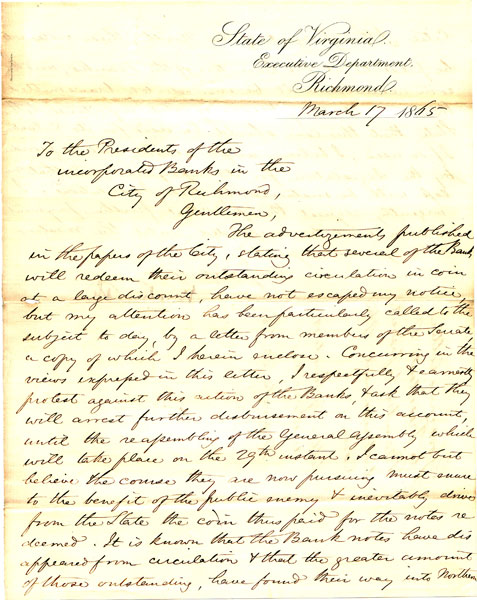 State of Virginia.
Executive Department.
Richmond,
March 17 1865
To the Presidents of the
incorporated Banks in the
City of Richmond,
Gentlemen,
The advertizements published
in the papers of the City, stating that several of the Banks
will redeem their outstanding circulation in coin
at a large discount, have not escaped my notice
but my attention has been particularly called to the
subject to day, by a letter from members of the Senate
a copy of which I herein enclose. Concurring in the
views expressed in this letter, I respectfully & earnestly
protest against this action of the Banks, & ask that they
will arrest further disbursement on this account,
until the reassembling of the General Assembly which
will take place on the 29th instant. I cannot but
believe the course they are now pursuing must enure
to the benefit of the public enemy & inevitably draw
from the State the coin thus paid for the notes re
deemed. It is known that the Bank notes have dis
appeared from circulation & that the greater amount
of those outstanding, have found their way into Northern